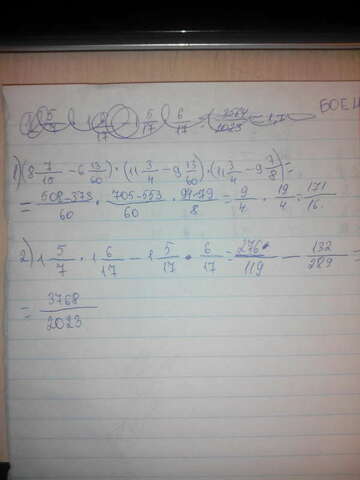 БОЕН
1) (8 7/10 - 6 13/60) · (11 3/4 - 9 13/60) · (11 3/4 - 9 7/8) =
= 508-373/60 · 705-553/60 · 94-79/8 = 9/4 · 19/4 = 171/16.
2) 1 5/7 · 1 6/17 - 1 5/17 · 6/17 = 276/119 - 132/289 =
= 3768/2023